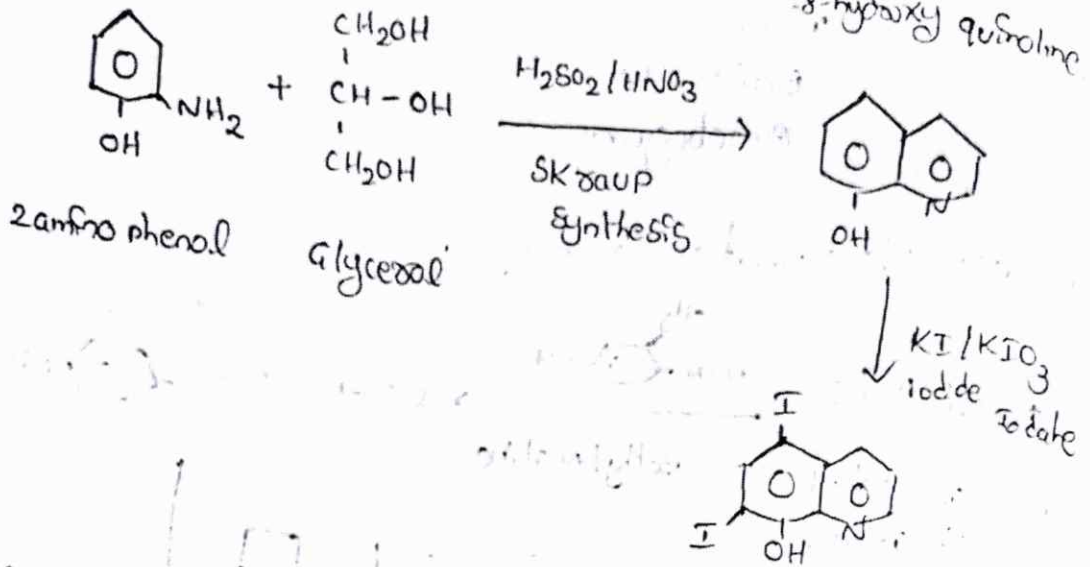 8-hydroxy quinoline
CH2OH
CH - OH
CH2OH
+
NH2
OH
H2SO2 / HNO3
SKraup
Synthesis
2 amino phenol
Glycerol
N
OH
KI / KIO3
iodde Iodate
I
I
OH
N